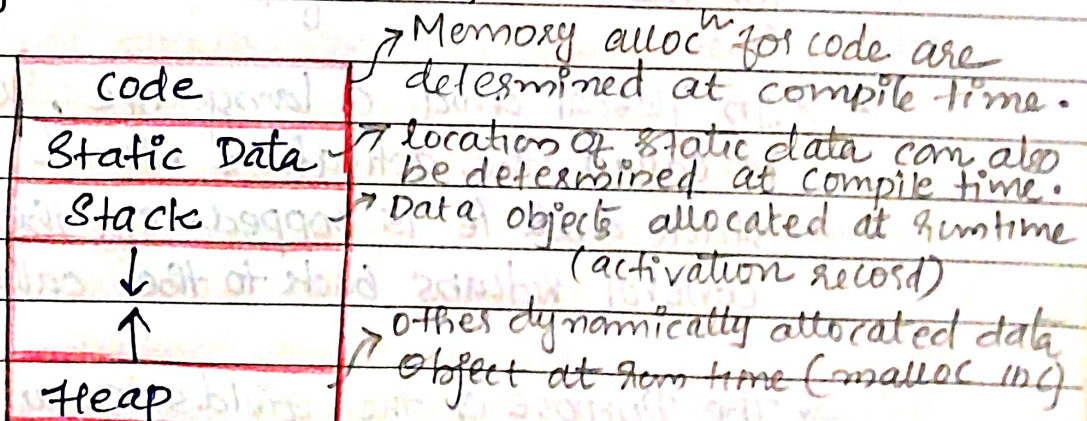 Memory allocⁿ for code are
code
determined at compile time.
Static Data
location of static data can also
be determined at compile time.
Stack
Data objects allocated at runtime
(activation record)
↓
↑
other dynamically allocated data
object at run time (malloc in C)
Heap